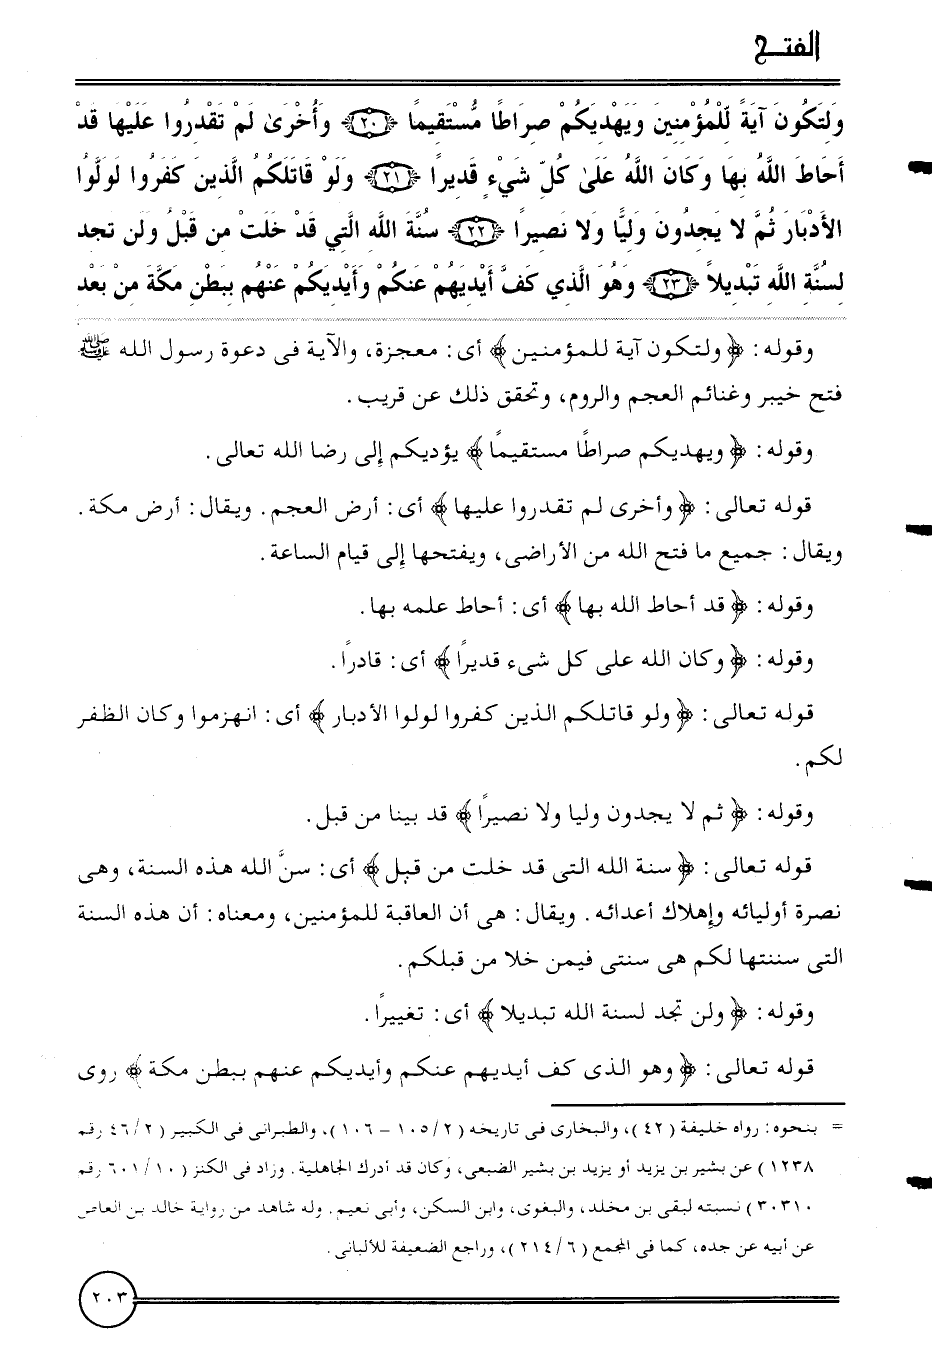 الفتـح
وَلِتَكُونَ آيَةً لِّلْمُؤْمِنِينَ وَيَهْدِيَكُمْ صِرَاطًا مُّسْتَقِيمًا ﴿٢٠﴾ وَأُخْرَىٰ لَمْ تَقْدِرُوا عَلَيْهَا قَدْ
أَحَاطَ اللَّهُ بِهَا وَكَانَ اللَّهُ عَلَىٰ كُلِّ شَيْءٍ قَدِيرًا ﴿٢١﴾ وَلَوْ قَاتَلَكُمُ الَّذِينَ كَفَرُوا لَوَلَّوُا
الأَدْبَارَ ثُمَّ لا يَجِدُونَ وَلِيًّا وَلا نَصِيرًا ﴿٢٢﴾ سُنَّةَ اللَّهِ الَّتِي قَدْ خَلَتْ مِن قَبْلُ وَلَن تَجِدَ
لِسُنَّةِ اللَّهِ تَبْدِيلاً ﴿٢٣﴾ وَهُوَ الَّذِي كَفَّ أَيْدِيَهُمْ عَنكُمْ وَأَيْدِيَكُمْ عَنْهُم بِبَطْنِ مَكَّةَ مِنْ بَعْدِ
وقوله: ﴿ ولتكون آية للمؤمنين ﴾ أى: معجزة، والآية فى دعوة رسول الله ﷺ
فتح خيبر وغنائم العجم والروم، وتحقق ذلك عن قريب.
وقوله: ﴿ ويهديكم صراطًا مستقيمًا ﴾ يؤديكم إلى رضا الله تعالى.
قوله تعالى: ﴿ وأخرى لم تقدروا عليها ﴾ أى: أرض العجم. ويقال: أرض مكة.
ويقال: جميع ما فتح الله من الأراضى، ويفتحها إلى قيام الساعة.
وقوله: ﴿ قد أحاط الله بها ﴾ أى: أحاط علمه بها.
وقوله: ﴿ وكان الله على كل شىء قديرًا ﴾ أى: قادرًا.
قوله تعالى: ﴿ ولو قاتلكم الذين كفروا لولوا الأدبار ﴾ أى: انهزموا وكان الظفر
لكم.
وقوله: ﴿ ثم لا يجدون وليا ولا نصيرًا ﴾ قد بينا من قبل.
قوله تعالى: ﴿ سنة الله التى قد خلت من قبل ﴾ أى: سنَّ الله هذه السنة، وهى
نصرة أوليائه وإهلاك أعدائه. ويقال: هى أن العاقبة للمؤمنين، ومعناه: أن هذه السنة
التى سننتها لكم هى سنتى فيمن خلا من قبلكم.
وقوله: ﴿ ولن تجد لسنة الله تبديلا ﴾ أى: تغييرًا.
قوله تعالى: ﴿ وهو الذى كف أيديهم عنكم وأيديكم عنهم ببطن مكة ﴾ روى
= بنحوه: رواه خليفة (٤٢)، والبخارى فى تاريخه (١٠٥/٢ – ١٠٦)، والطبرانى فى الكبير (٤٦/٢ رقم
١٢٣٨) عن بشير بن يزيد أو يزيد بن بشير الضبعى، وكان قد أدرك الجاهلية. وزاد فى الكنز (٦٠١/١٠ رقم
٣٠٣١٠) نسبته لبقى بن مخلد، والبغوى، وابن السكن، وأبى نعيم. وله شاهد من رواية خالد بن العاص
عن أبيه عن جده، كما فى المجمع (٢١٤/٦)، وراجع الضعيفة للألبانى.
٢٠٣